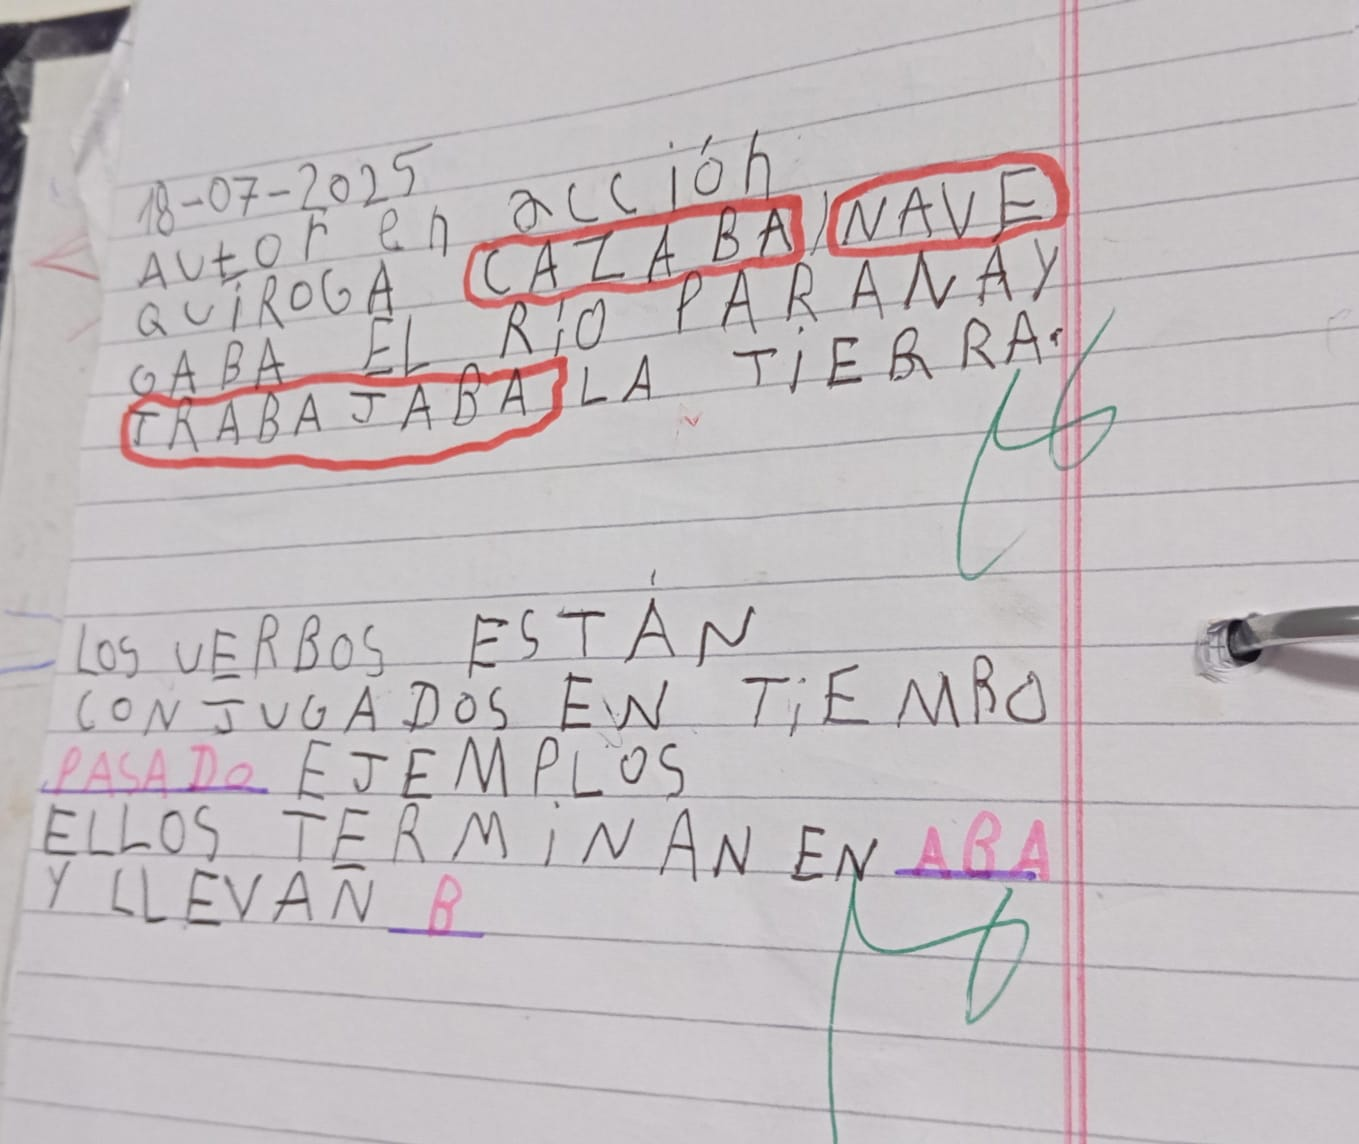 18-07-2025
AUtor en acción
QUIROGA CAZABA, NAVE
GABA EL RÍO PARANÁ Y
TRABAJABA LA TIERRA.
LOS VERBOS ESTÁN
CONJUGADOS EN TIEMBO
PASADO EJEMPLOS
ELLOS TERMINAN EN ABA
Y LLEVAN B